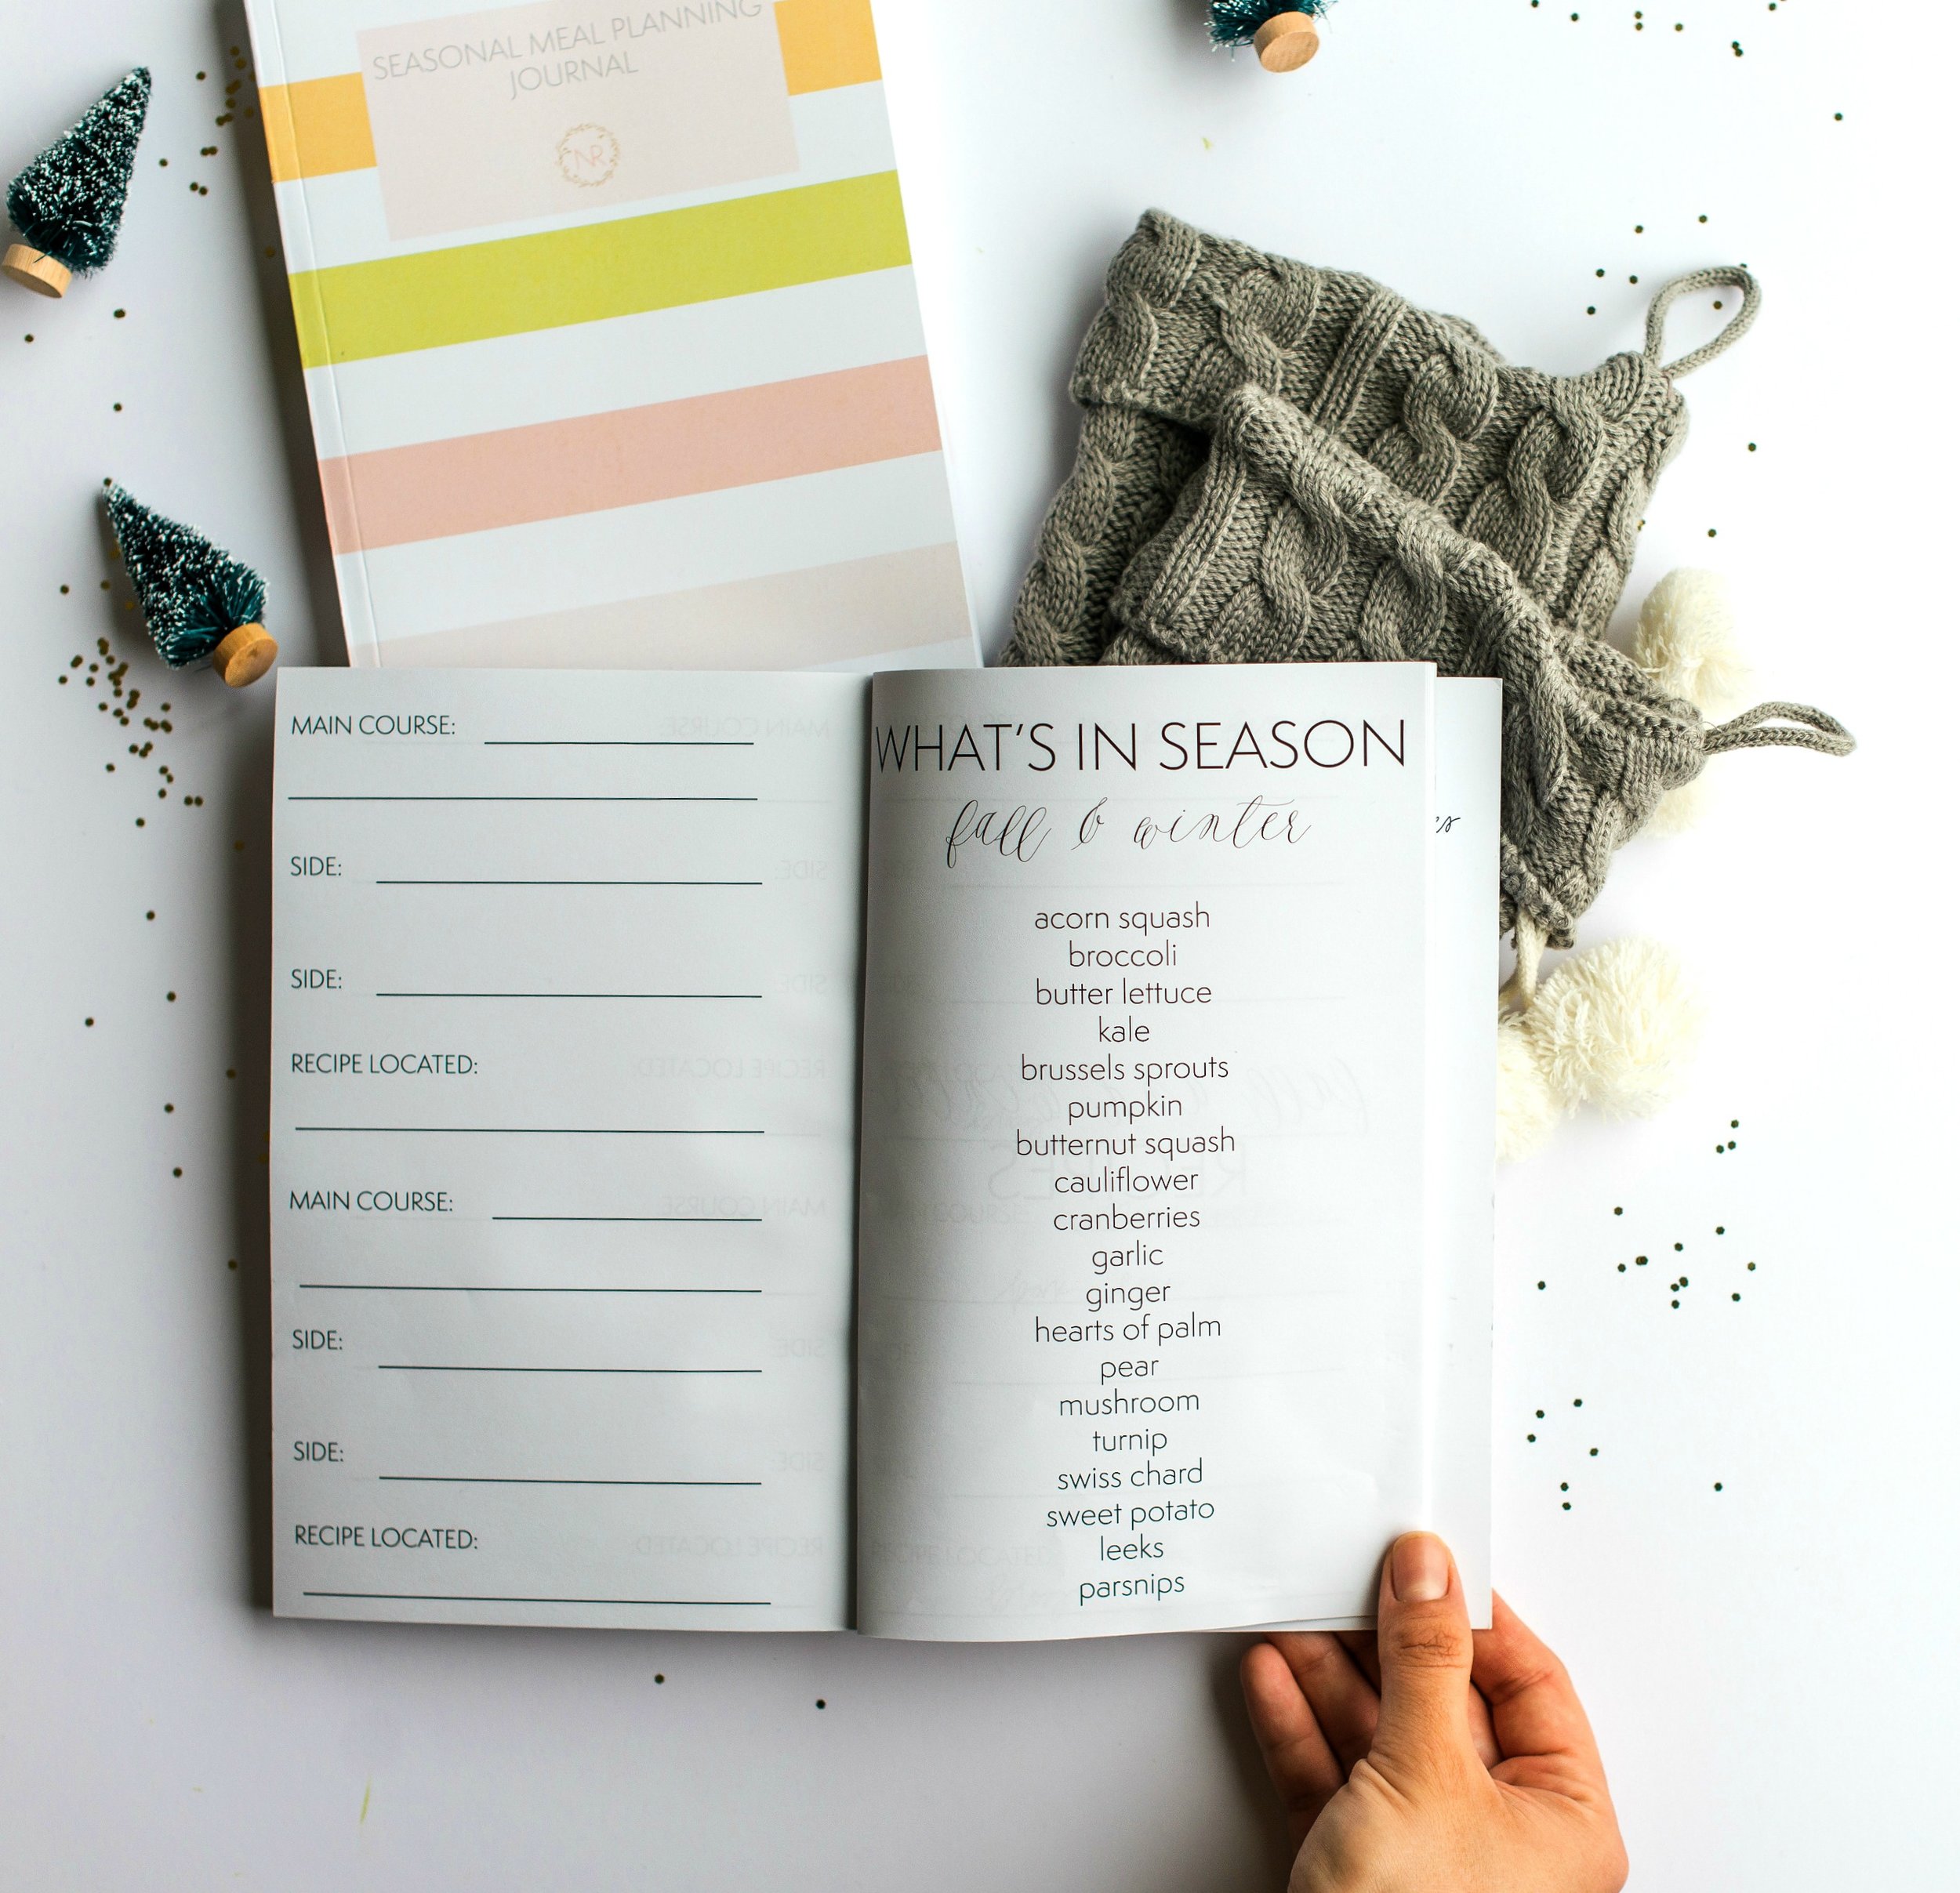 SEASONAL MEAL PLANNING
JOURNAL
NR
MAIN COURSE:
SIDE:
SIDE:
RECIPE LOCATED:
MAIN COURSE:
SIDE:
SIDE:
RECIPE LOCATED:
WHAT'S IN SEASON
fall & winter
acorn squash
broccoli
butter lettuce
kale
brussels sprouts
pumpkin
butternut squash
cauliflower
cranberries
garlic
ginger
hearts of palm
pear
mushroom
turnip
swiss chard
sweet potato
leeks
parsnips